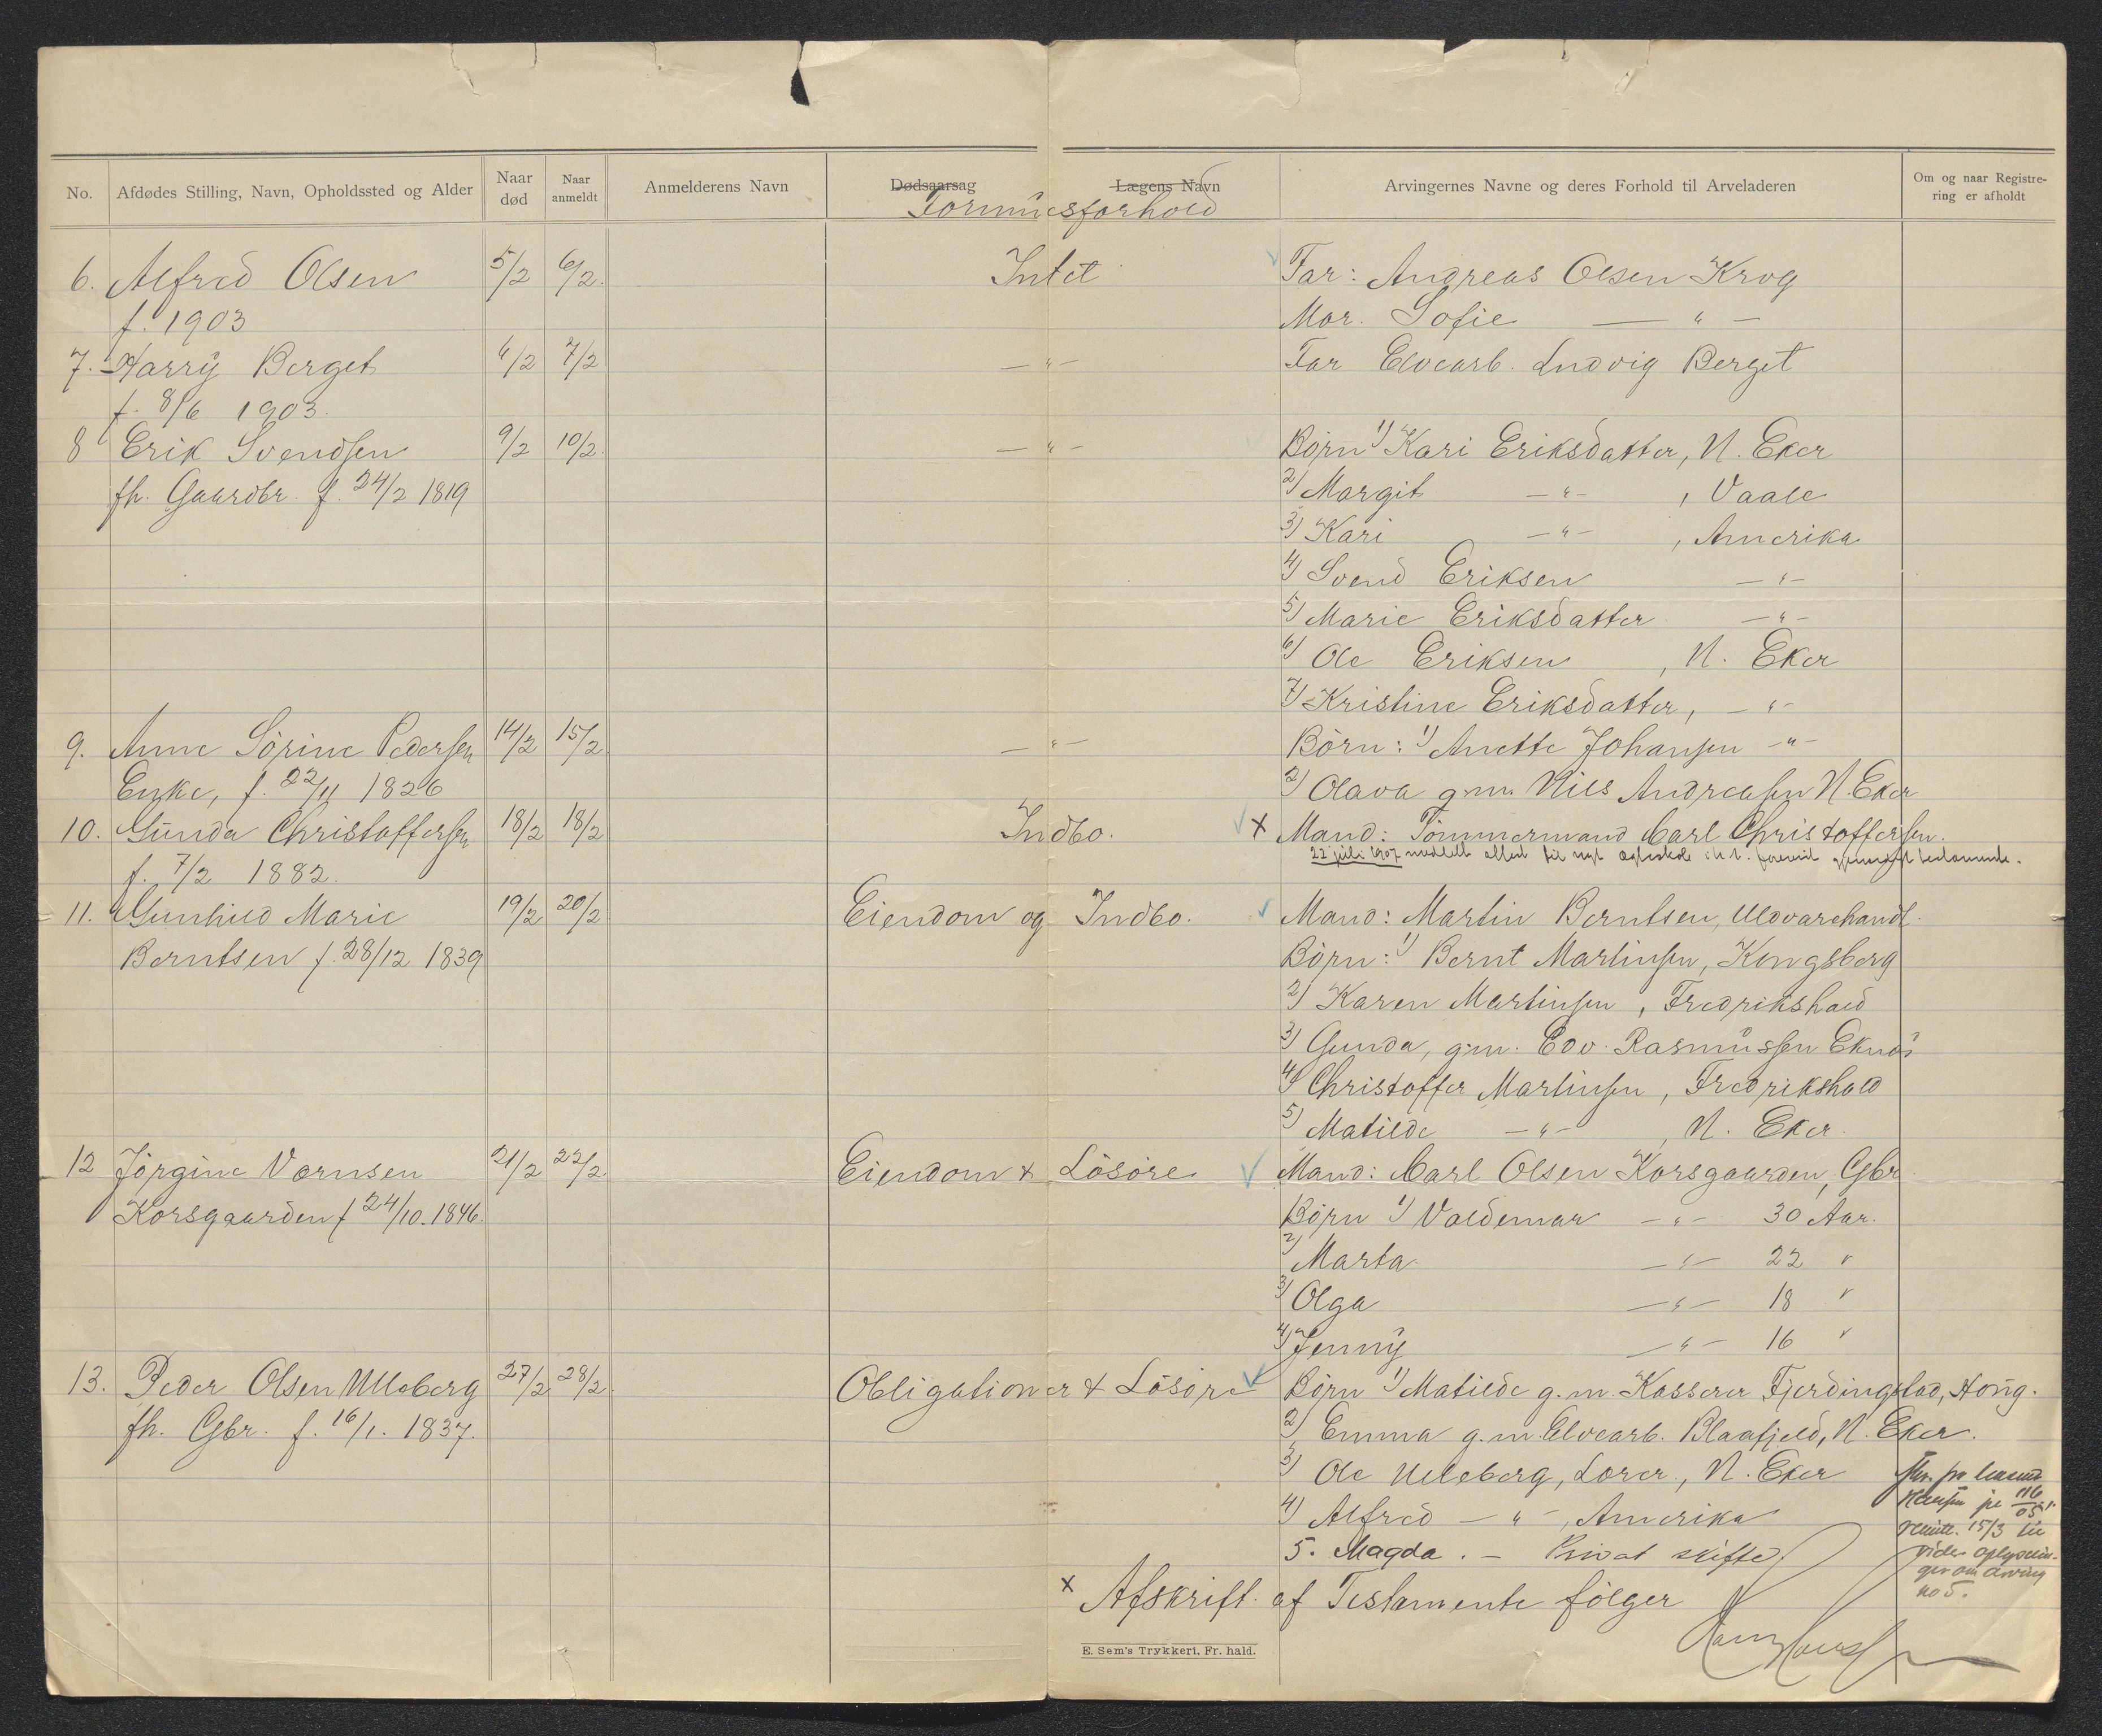 No. Afdødes Stilling, Navn, Opholdssted og Alder Naar død Naar anmeldt Anmelderens Navn Dødsaarsag Lægens Navn Arvingernes Navne og deres Forhold til Arveladeren Om og naar Registrering er afholdt
Formuesforhold
6. Alfred Olsen 5/2 6/2. Intet Far: Andreas Olsen Krog
f. 1903 Mor. Sofie — " —
7. Harry Berget 6/2 7/2 — " — Far Elvearb. Ludvig Berget
f. 8/6 1903.
8 Erik Svendsen 9/2 10/2. — " — Børn 1) Kari Eriksdatter, N. Eker
fh. Gaardbr. f. 24/2 1819 2) Margit — " — , Vaale
3) Kari — " — , Amerika
4) Svend Eriksen — " —
5) Marie Eriksdatter — " —
6) Ole Eriksen , N. Eker
7) Kristine Eriksdatter, — " —
9. Anne Sørine Pedersen 14/2 15/2 — " — Børn: 1) Anette Johansen — " —
Enke, f. 22/11 1826 2) Olava g.m. Nils Andreasen N. Eker
10. Gunda Christoffersen 18/2 18/2 Indbo. x Mand: Tømmermand Carl Christoffersen.
f. 7/2 1882. 22 juli 1907 meddelt attest til nyt ægteskab
11. Gunhild Marie 19/2 20/2 Eiendom og Indbo. Mand: Martin Berntsen, Uldvarehandl.
Berntsen f. 28/12 1839 Børn: 1) Bernt Martinsen, Kongsberg
2) Karen Martinsen, Fredrikshald
3) Gunda, g.m. Edv. Rasmussen Eknes
4) Christoffer Martinsen, Fredrikshald
5) Matilde — " — , N. Eker.
12 Jørgine Vernsen 21/2 22/2. Eiendom & Løsøre Mand: Carl Olsen Korsgaarden, Gbr
Korsgaarden f 24/10. 1846. Børn 1) Valdemar — " — 30 Aar.
2) Marta — " — 22 "
3) Olga — " — 18 "
4) Jenny — " — 16 "
13. Peder Olsen Ulleberg 27/2 28/2. Obligationer & Løsøre Børn 1) Matilde g.m. Kasserer Fjerdingstad, Høng.
fh. Gbr. f. 16/1. 1837. 2) Emma g.m. Elvearb. Blaafjeld, N. Eker.
3) Ole Ulleberg, Lærer, N. Eker
4) Alfred — " — , Amerika
5. Magda. — Privat skifte.
15/3 til
vider oplysnin-
ger om arving
no 5.
x Afskrift af Testamente følger
E. Sem's Trykkeri. Fr. hald.